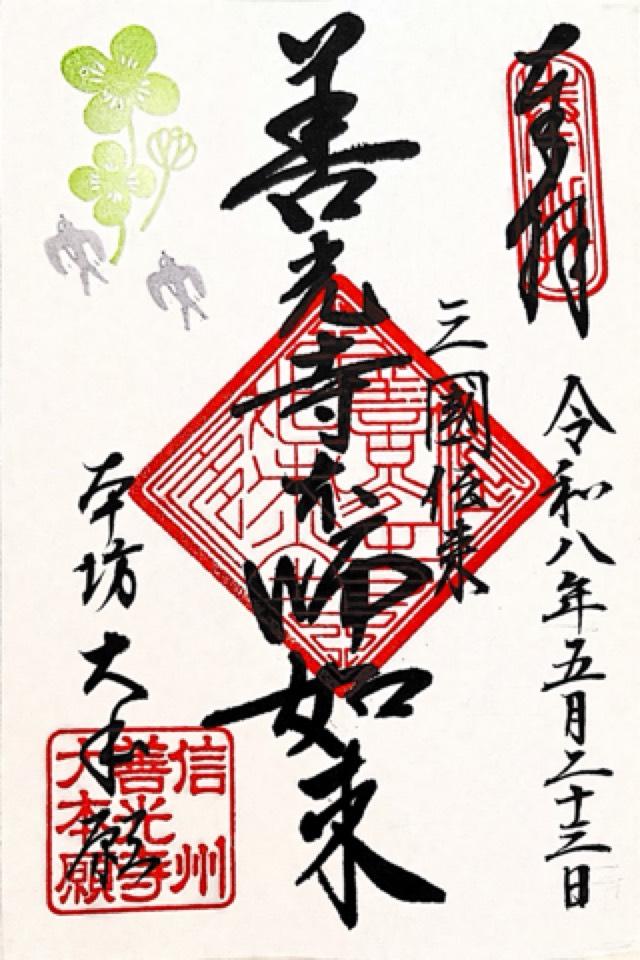 奉拝
令和八年五月二十三日
三國伝来
善光寺本師如来
本坊 大本願
信州
善光寺
大本願